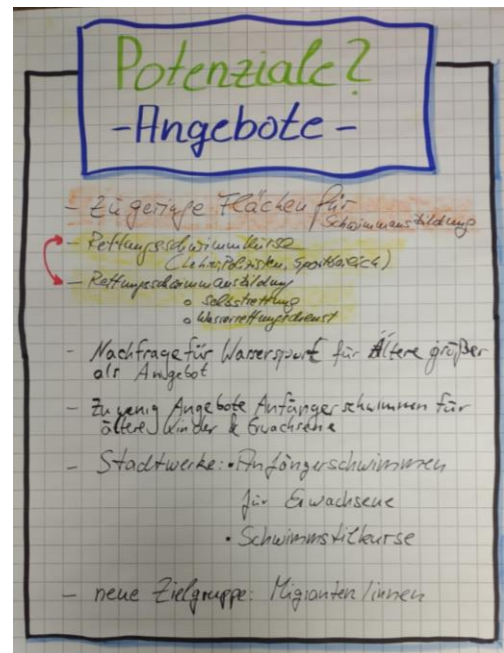 Potenziale?
-Angebote-
- Zu geringe Flächen für
Schwimmausbildung
- Rettungsschwimmkurse
(Lehrer, Polizisten, Sportbereich)
- Rettungsschwimmausbildung
o Selbstrettung
o Wasserrettungsdienst
- Nachfrage für Wassersport für Ältere größer
als Angebot
- Zu wenig Angebote Anfängerschwimmen für
ältere Kinder & Erwachsene
- Stadtwerke: • Anfängerschwimmen
für Erwachsene
• Schwimmstilkurse
- neue Zielgruppe: Migranten/innen